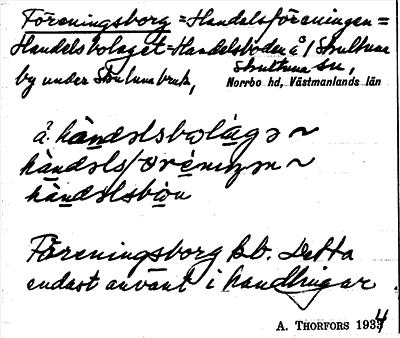 Föreningsborg = Handelsföreningen =
Handelsbolaget = Handelsboden å / Skultuna
by under Skultuna bruk, Skultuna sn,
Norrbo hd, Västmanlands län
å. hàndəlsbωlàgə ~
hàndəls/ørèniŋən ~
hàndəlsbωn
Föreningsborg bb. Detta
endast använt i handlingar
A. THORFORS 1934